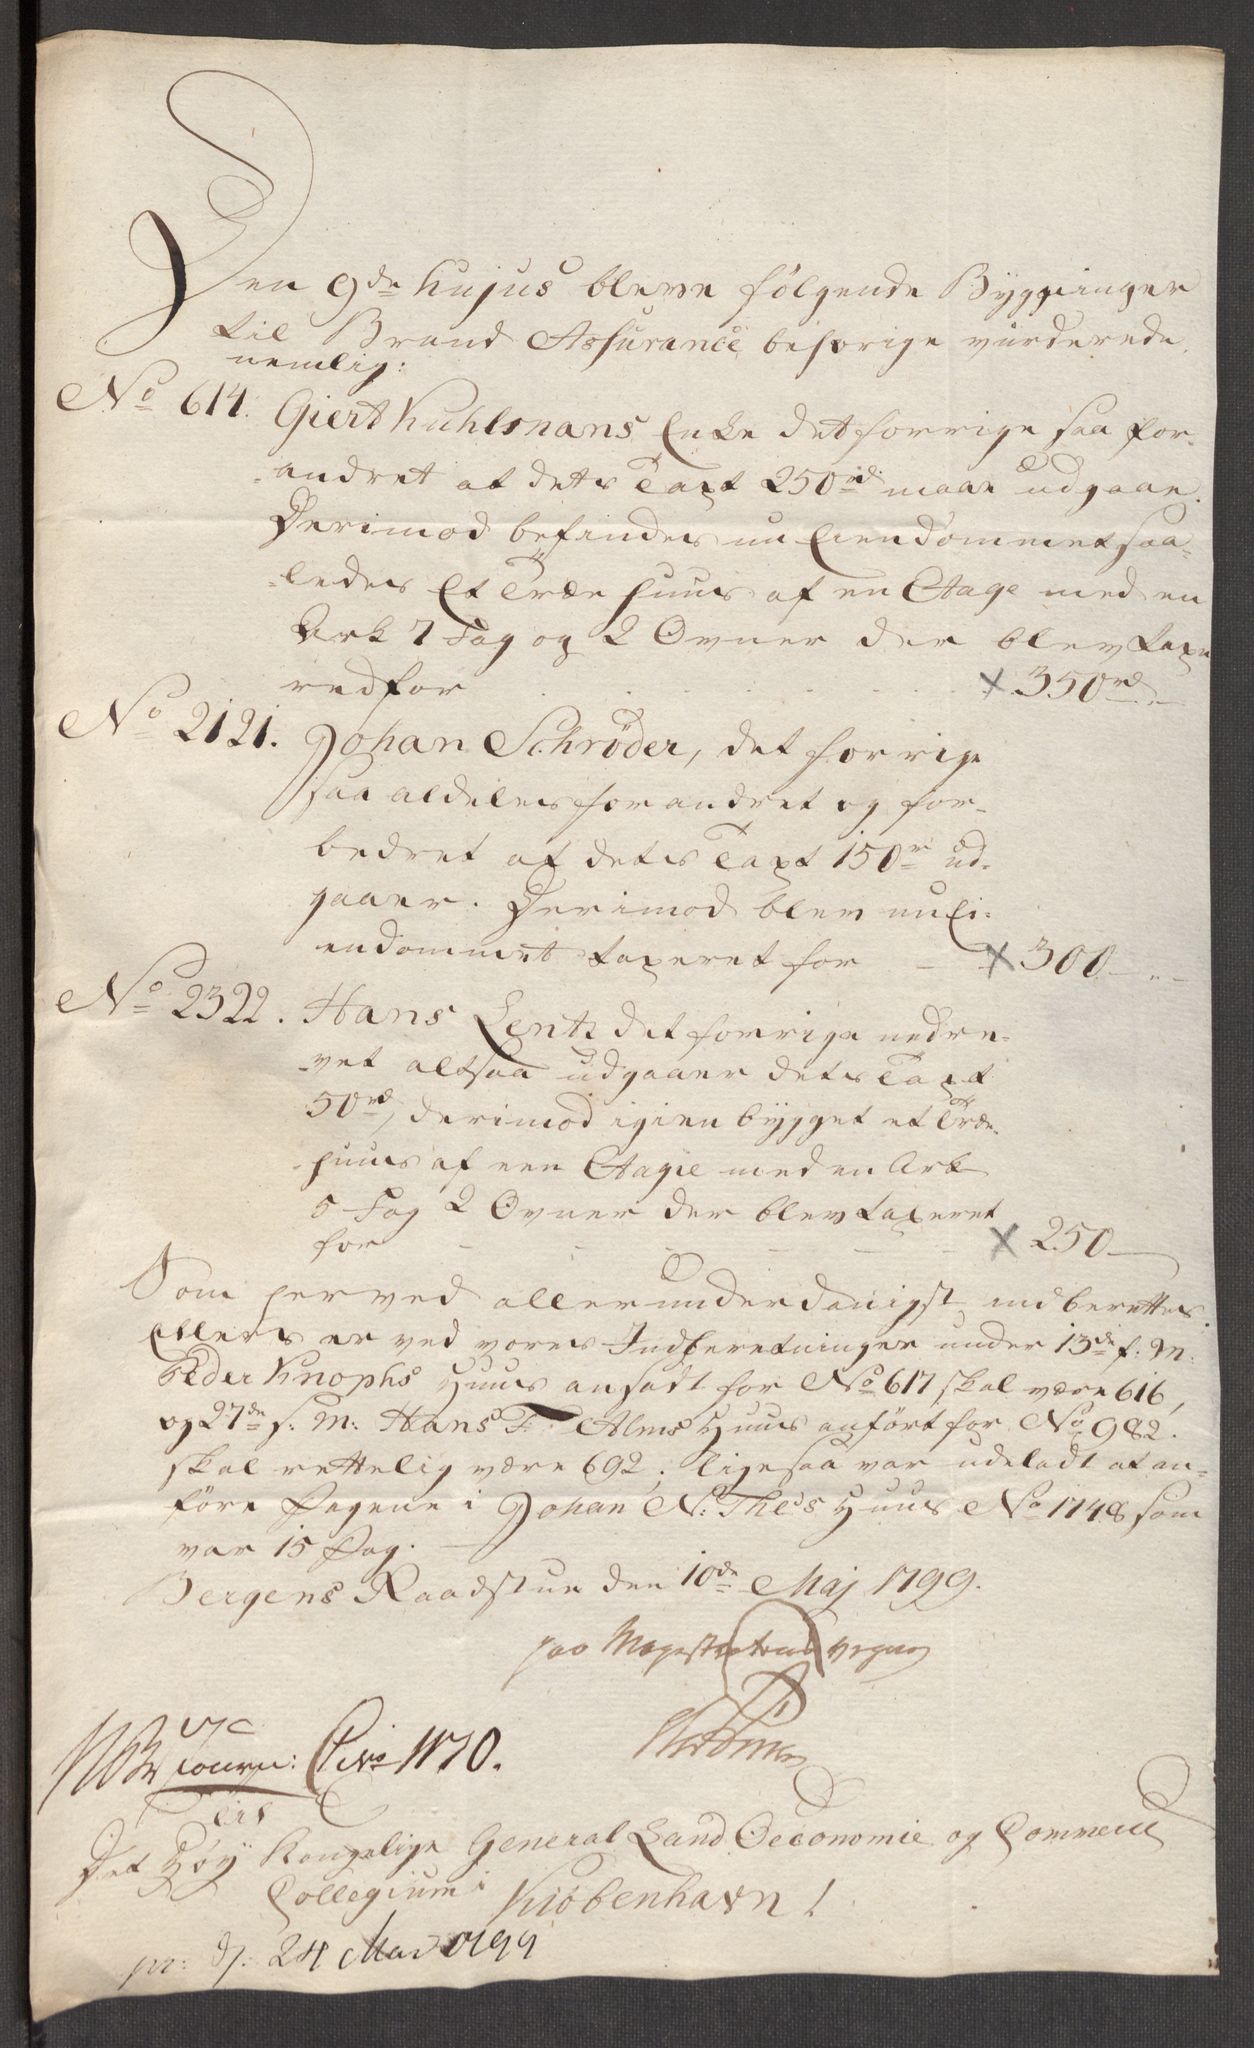 Den 9de hujus bleve følgende Bygninger
til Brand Assurance behørige vurderede
nemlig:
No 614. Giert Kuhlmans Enke det forrige saa for-
-andret at dets Taxt 250rd maae udgaae.
Derimod befindes nu Eiendommet saa-
-ledes Et Træe Huus af en Etage med en
Ark 7 Fag og 2 Ovner der blev taxe
red for × 350rd
No 2121. Johan Schrøder, det forrige
saa aldeles forandret og for-
bedret at dets Taxt 150rd ud-
gaaer. Derimod blev nu Ei-
endommet taxeret for × 300
No 2322. Hans Lentz det forrige nedre-
-vet altsaa udgaaer dets Taxt
50rd, derimod igien bygget et Træe
huus af een Etage med en Ark
5 Fag 2 Ovner der blev taxeret
for × 250
Som herved allerunderdanigst indberettes.
Ellers er ved vores Indberetninger under 13de f: M:
Peder Knophs Huus ansadt for No 617, skal være 616,
og 27de f. M: Hans F: Alms Huus anført for No 982.
skal rettelig være 692; ligesaa var udeladt at an-
føre Fagene i Johan N: The's Huus No 1748 som
var 15 Fag.
Bergens Raadstue den 10de Maj 1799.
paa Magistratens vegne
No 1170.
Til
Det Høy Kongelige General Land Oeconomie og Commerce
Collegium i Kiøbenhavn!
pr: d: 24 Mai 1799